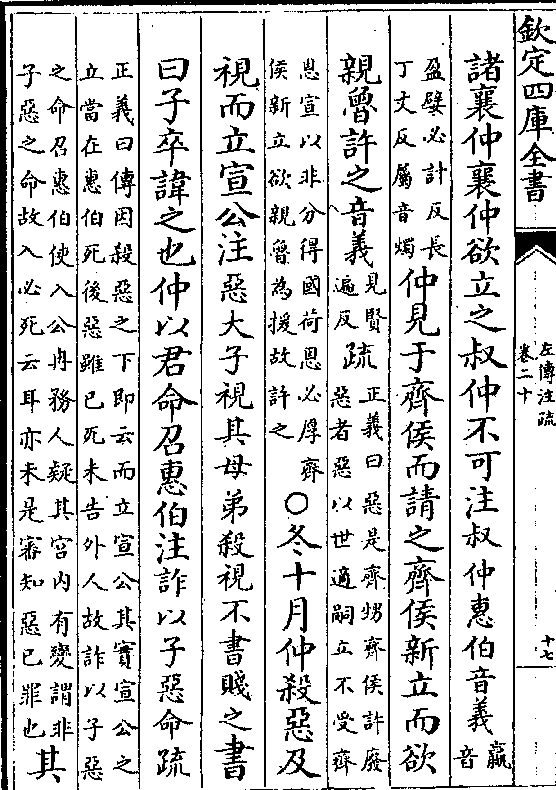 欽定四庫全書
左傳注疏
卷二十
十七
諸襄仲襄仲欲立之叔仲不可注叔仲惠伯音義
嬴
音
盈嬖必計反長
丁丈反屬音燭
仲見于齊侯而請之齊侯新立而欲
親魯許之音義
見賢
遍反
疏
正義曰惡是齊甥齊侯許廢
惡者惡以世適嗣立不受齊
恩宣以非分得國荷恩必厚齊
侯新立欲親魯為援故許之
○冬十月仲殺惡及
視而立宣公注惡大子視其母弟殺視不書賤之書
曰子卒諱之也仲以君命召惠伯注詐以子惡命疏
正義曰傳因殺惡之下即云而立宣公其實宣公之
立當在惠伯死後惡雖已死未告外人故詐以子惡
之命召惠伯使入公冉務人疑其宮内有變謂非
子惡之命故入必死云耳亦未是審知惡已罪也
其